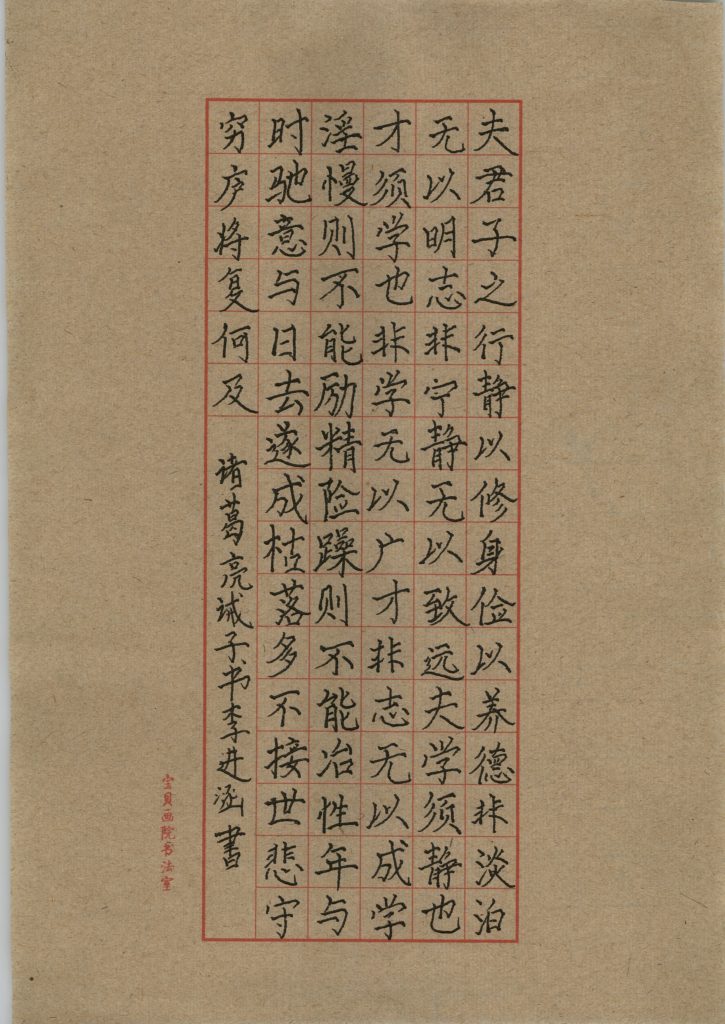 夫君子之行静以修身俭以养德非淡泊
无以明志非宁静无以致远夫学须静也
才须学也非学无以广才非志无以成学
淫慢则不能励精险躁则不能冶性年与
时驰意与日去遂成枯落多不接世悲守
穷庐将复何及
诸葛亮诫子书李进涵書
宝贝画院书法室